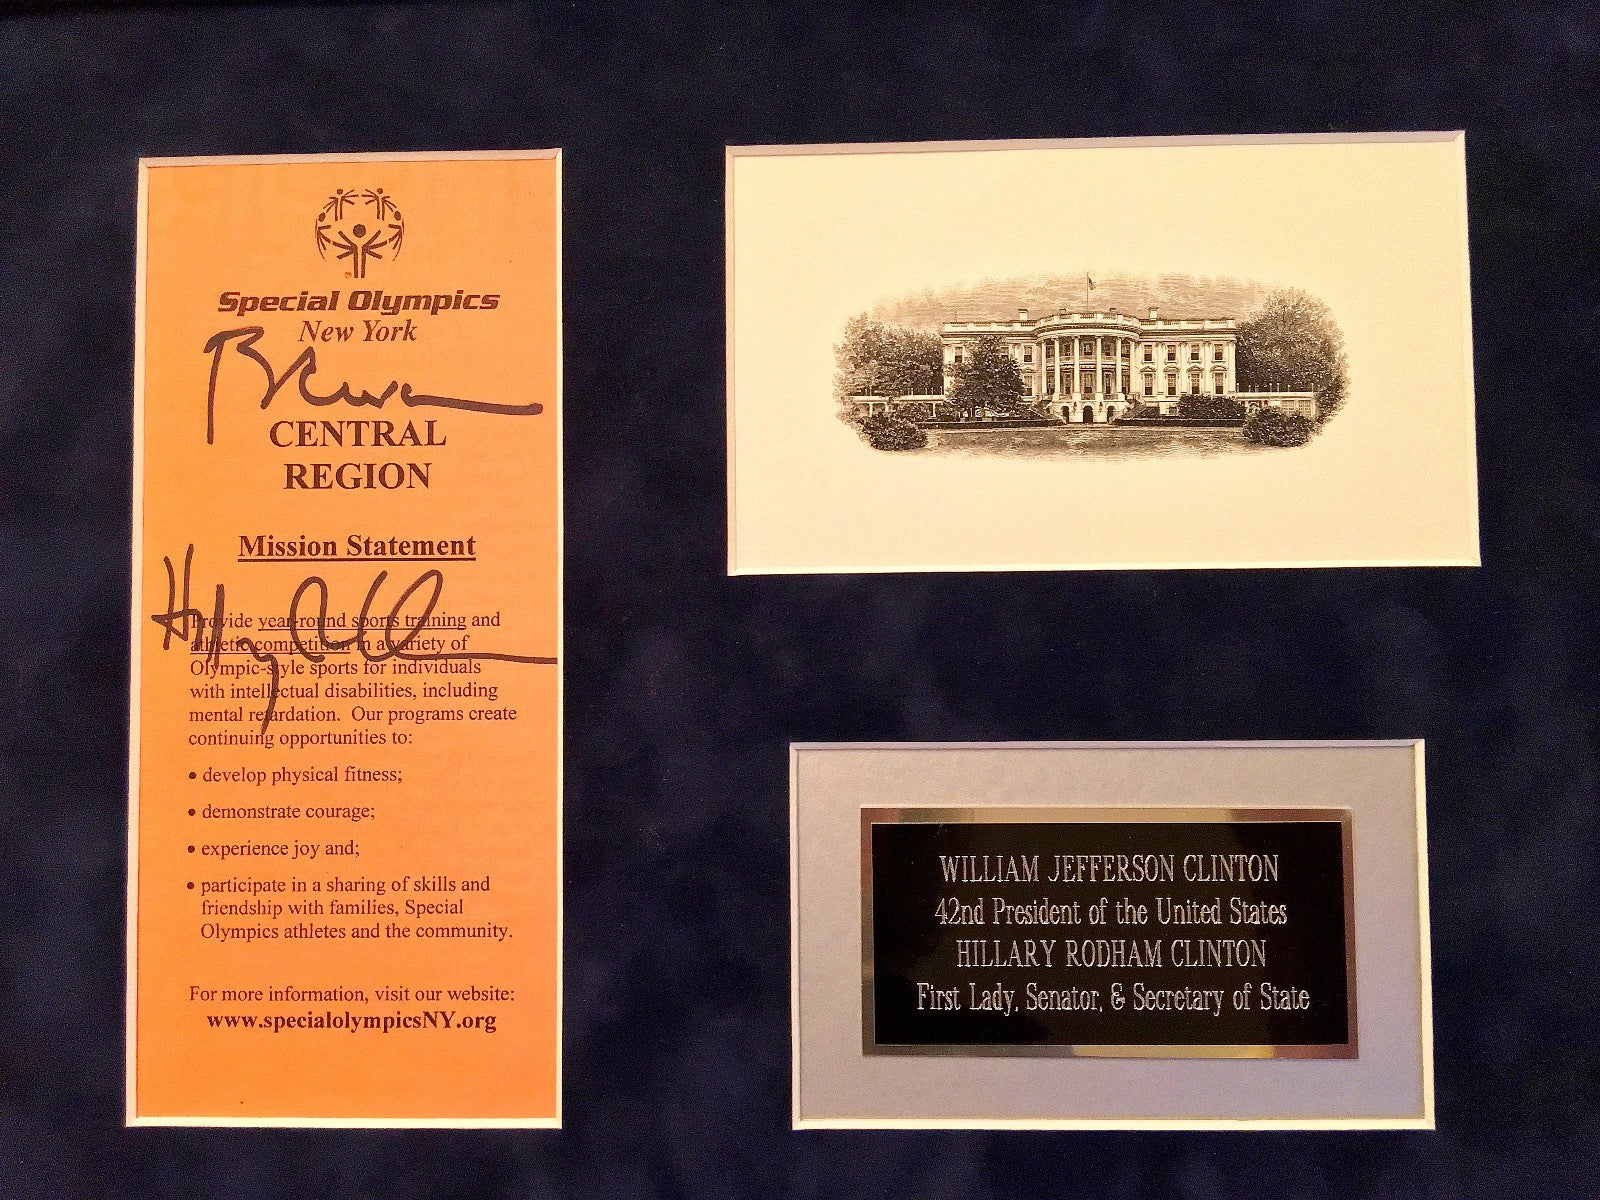 Special Olympics
New York
CENTRAL
REGION
Mission Statement
Hillary
Provide year-round sports training and
athletic competition in a variety of
Olympic-style sports for individuals
with intellectual disabilities, including
mental retardation. Our programs create
continuing opportunities to:
• develop physical fitness;
• demonstrate courage;
• experience joy and;
• participate in a sharing of skills and
friendship with families, Special
Olympics athletes and the community.
For more information, visit our website:
www.specialolympicsNY.org
WILLIAM JEFFERSON CLINTON
42nd President of the United States
HILLARY RODHAM CLINTON
First Lady, Senator, & Secretary of State